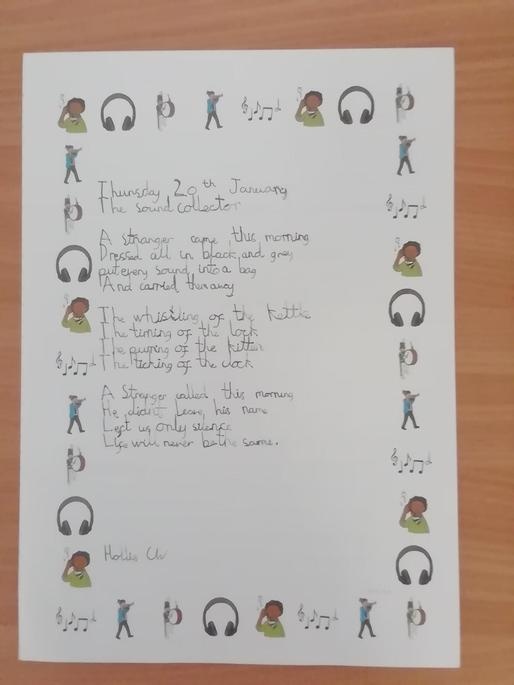 Thursday 20th January
The sound collector
A stranger came this morning
Dressed all in black and grey
put every sound into a bag
And carried them away
The whistling of the kettle
The turning of the lock
The purring of the kitten
The ticking of the clock
A Stranger called this morning
He didnt leave his name
Left us only silence
Life will never be the same.